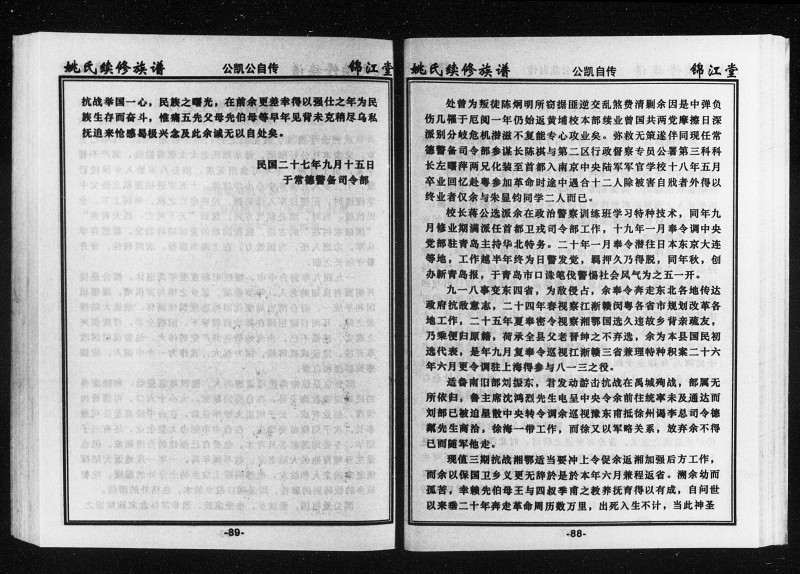 姚氏续修族谱 公凯自传 锦江堂
处曾为叛徒陈炯明所窃据匪逆交乱煞费清剿余因是中弹负
伤几罹于厄阅一年仍始返黄埔校本部续业曾国共两党摩擦日深
派别分岐危机潜滋不复能专心攻业矣。弥救无策遂伴同现任常
德警备司令部参谋长陈祺与第二区行政督察专员公署第三科科
长左曙萍两兄化装至首都入南京中央陆军军官学校十八年五月
卒业回忆赴粤参加革命时途中遇合十二人除被害自戕者外得以
终业者仅余与朱显钧同学二人而已。
校长蒋公选派余在政治警察训练班学习特种技术，同年九
月修业期满派任首都卫戍司令部工作，十九年一月奉令调中央
党部驻青岛主持华北特务。二十年一月奉令潜往日本东京大连
等地，工作越半年终为日警发觉，羁押久乃得脱，同年秋，创
办新青岛报，于青岛市口诛笔伐警惕社会风气为之五一开。
九一八事变东四省，为敌侵占，余奉令奔走东北各地传达
政府抗敌意志，二十四年春视察江浙赣闵粤各省市规划改革各
地工作，二十五年夏奉密令视察湘鄂国选久违故乡背亲疏友，
乃乘便归原籍，荷承全县父老晋绅之不弃选，余为本县国民初
选代表，是年九月复奉令巡视江浙赣三省兼理特种积案二十六
年六月更令调驻上海得参与八一三之役。
适鲁南旧部刘振东，君发动游击抗战在禹城殉战，部属无
所依归，鲁主席沈鸿烈先生电呈中央令余前往统率未及通达而
刘部已被迫星散中央转令调余巡视豫东甫抵徐州谒李总司令德
粼先生商洽，徐海一带工作，而徐又以军略关系，放弃余不得
已而随军他走。
现值三期抗战湘鄂适当要冲上令促余返湘加强后方工作，
而余以保国卫乡义更无辞於是於本年六月兼程返省。溯余幼而
孤苦，幸赖先伯母王与四叔季甫之教养抚育得以有成，自问世
以来垂二十年奔走革命周历数万里，出死入生不计，当此神圣
-88-
姚氏续修族谱 公凯公自传 锦江堂
抗战举国一心，民族之曙光，在前余更差幸得以强仕之年为民
族生存而奋斗，惟痛五先父母先伯母等早年见背未克稍尽乌私
抚迫来怆感曷极兴念及此余诚无以自处矣。
民国二十七年九月十五日
于常德警备司令部
-89-